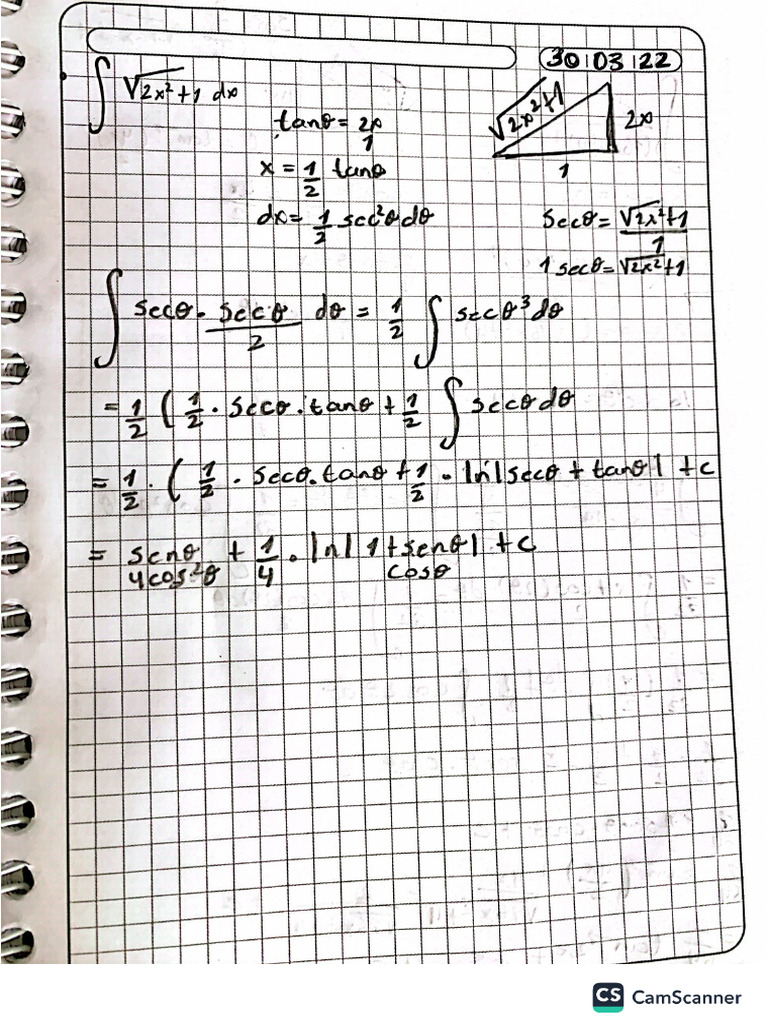 30 03 22
∫ √2x²+1 dx
√2x²+1
2x
1
tanθ = 2x/1
x = 1/2 tanθ
dx = 1/2 sec²θdθ
secθ = √2x²+1/1
1 secθ = √2x²+1
∫ secθ · secθ/2 dθ = 1/2 ∫ secθ³dθ
= 1/2 ( 1/2 · secθ · tanθ + 1/2 ∫ secθdθ
= 1/2 · ( 1/2 · secθ · tanθ + 1/2 · ln|secθ + tanθ| + c
= senθ/4cos²θ + 1/4 · ln| 1+senθ/cosθ | + c
CS CamScanner